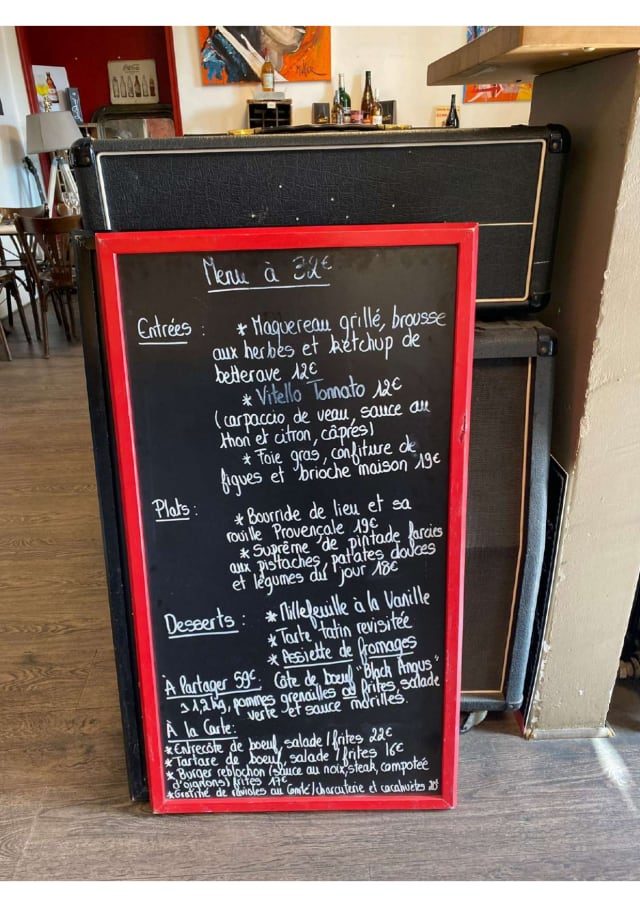 Menu à 32€
Entrées : * Maquereau grillé, brousse
aux herbes et ketchup de
betterave 12€
* Vitello Tonnato 12€
(carpaccio de veau, sauce au
thon et citron, câpres)
* Foie gras, confiture de
figues et brioche maison 19€
Plats : * Bourride de lieu et sa
rouille Provençale 19€
* Suprême de pintade farcies
aux pistaches, patates douces
et légumes du jour 18€
Desserts : * Millefeuille à la Vanille
* Tarte tatin revisitée
* Assiette de fromages
À Partager 59€ : Côte de boeuf "Black Angus"
1,2kg, pommes grenailles ou frites, salade
verte et sauce morilles.
À la Carte :
* Entrecôte de boeuf, salade / frites 22€
* Tartare de boeuf, salade / frites 16€
* Burger reblochon (sauce au noix, steak, compotée
d'oignons) frites 17€
* Gratiné de ravioles au Comté / charcuterie et cacahuètes